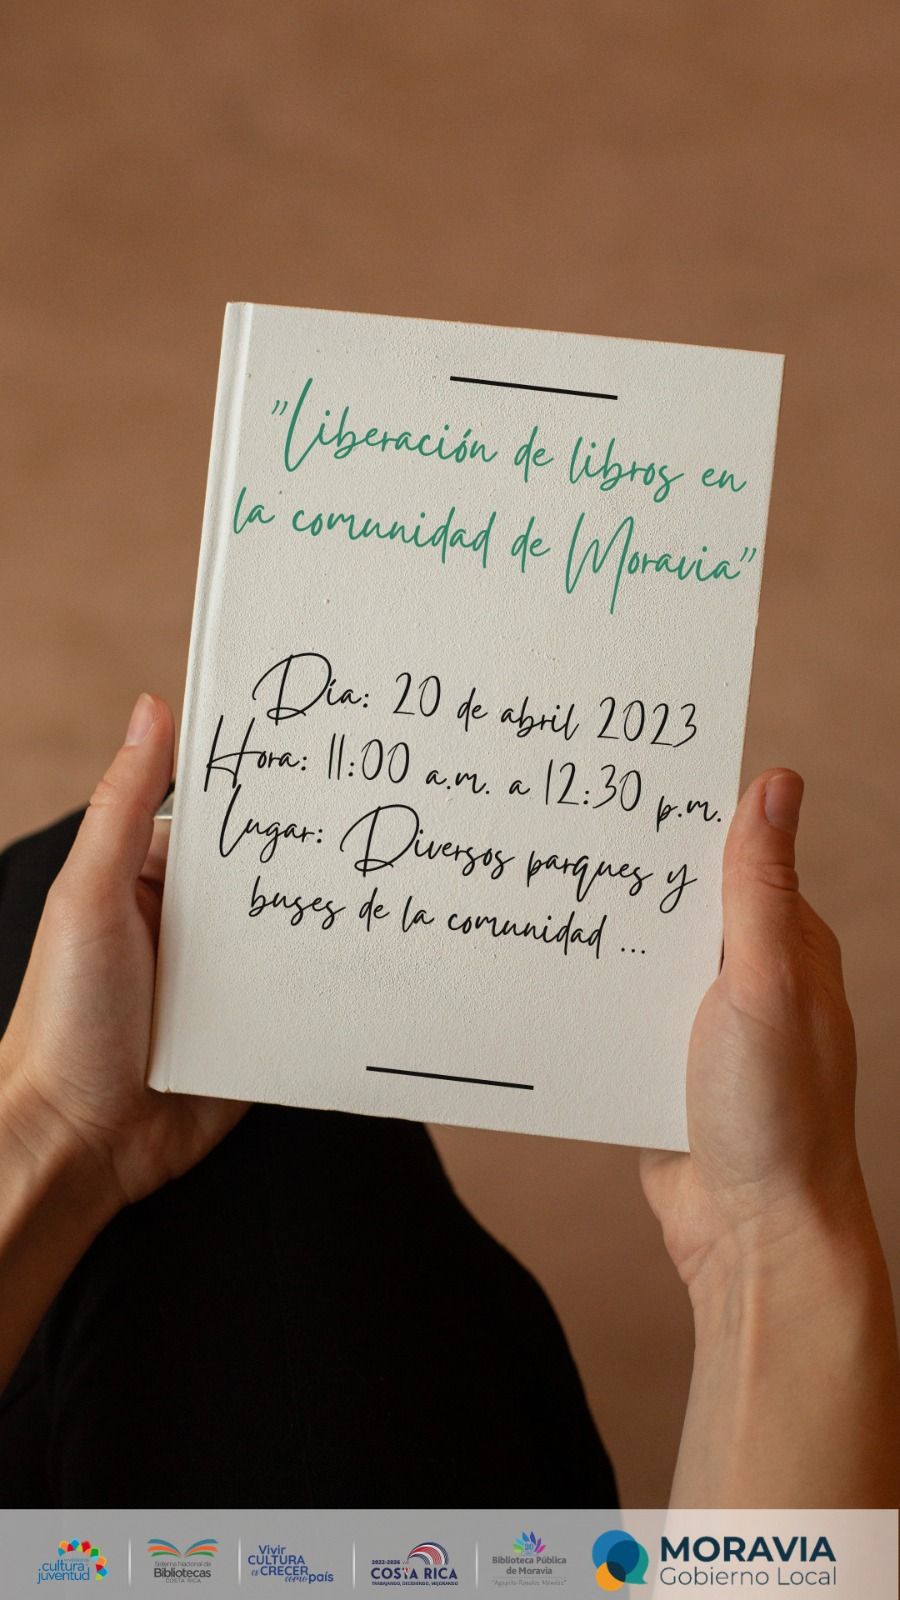 "Liberación de libros en
la comunidad de Moravia"
Día: 20 de abril 2023
Hora: 11:00 a.m. a 12:30 p.m.
Lugar: Diversos parques y
buses de la comunidad ...
cultura y
juventud
Sistema Nacional de
Bibliotecas
COSTA RICA
Vivir
CULTURA
es CRECER
como país
2022-2026
COSTA RICA
TRABAJANDO, DECIDIENDO, MEJORANDO
Biblioteca Pública
de Moravia
MORAVIA
Gobierno Local